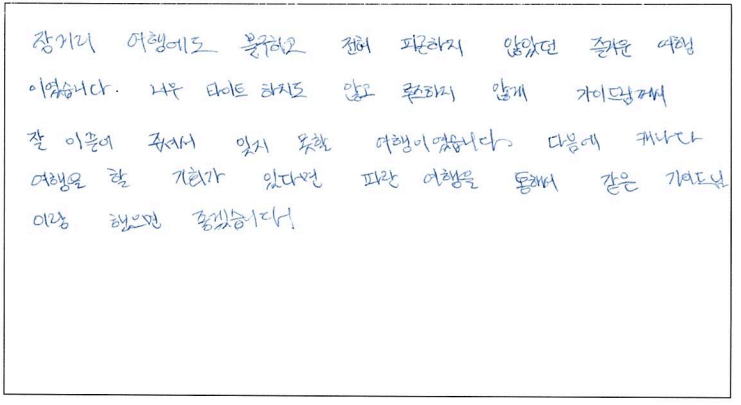 장거리 여행에도 불구하고 전혀 피곤하지 않았던 즐거운 여행
이었습니다. 너무 타이트 하지도 않고 루즈하지 않게 가이드님께서
잘 이끌어 주셔서 잊지 못할 여행이었습니다. 다음에 캐나다
여행을 할 기회가 있다면 파란 여행을 통해서 같은 가이드님
이랑 했으면 좋겠습니다!